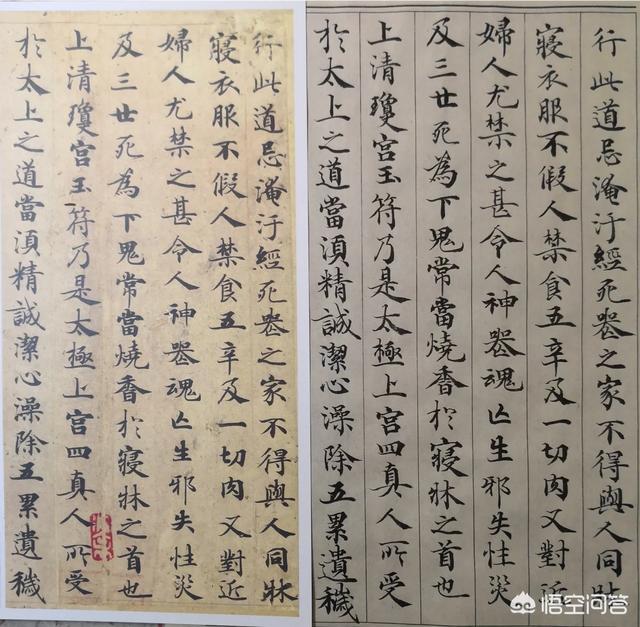 行此道忌淹汙經死喪之家不得與人同牀
寢衣服不假人禁食五辛及一切肉又對近
婦人尤禁之甚令人神喪魂亡生邪失性災
及三世死為下鬼常當燒香於寢牀之首也
上清瓊宮玉符乃是太極上宮四真人所受
於太上之道當湏精誠潔心澡除五累遺穢
行此道忌淹汙經死喪之家不得與人同牀
寢衣服不假人禁食五辛及一切肉又對近
婦人尤禁之甚令人神喪魂亡生邪失性災
及三世死為下鬼常當燒香於寢牀之首也
上清瓊宮玉符乃是太極上宮四真人所受
於太上之道當湏精誠潔心澡除五累遺穢
悟空问答